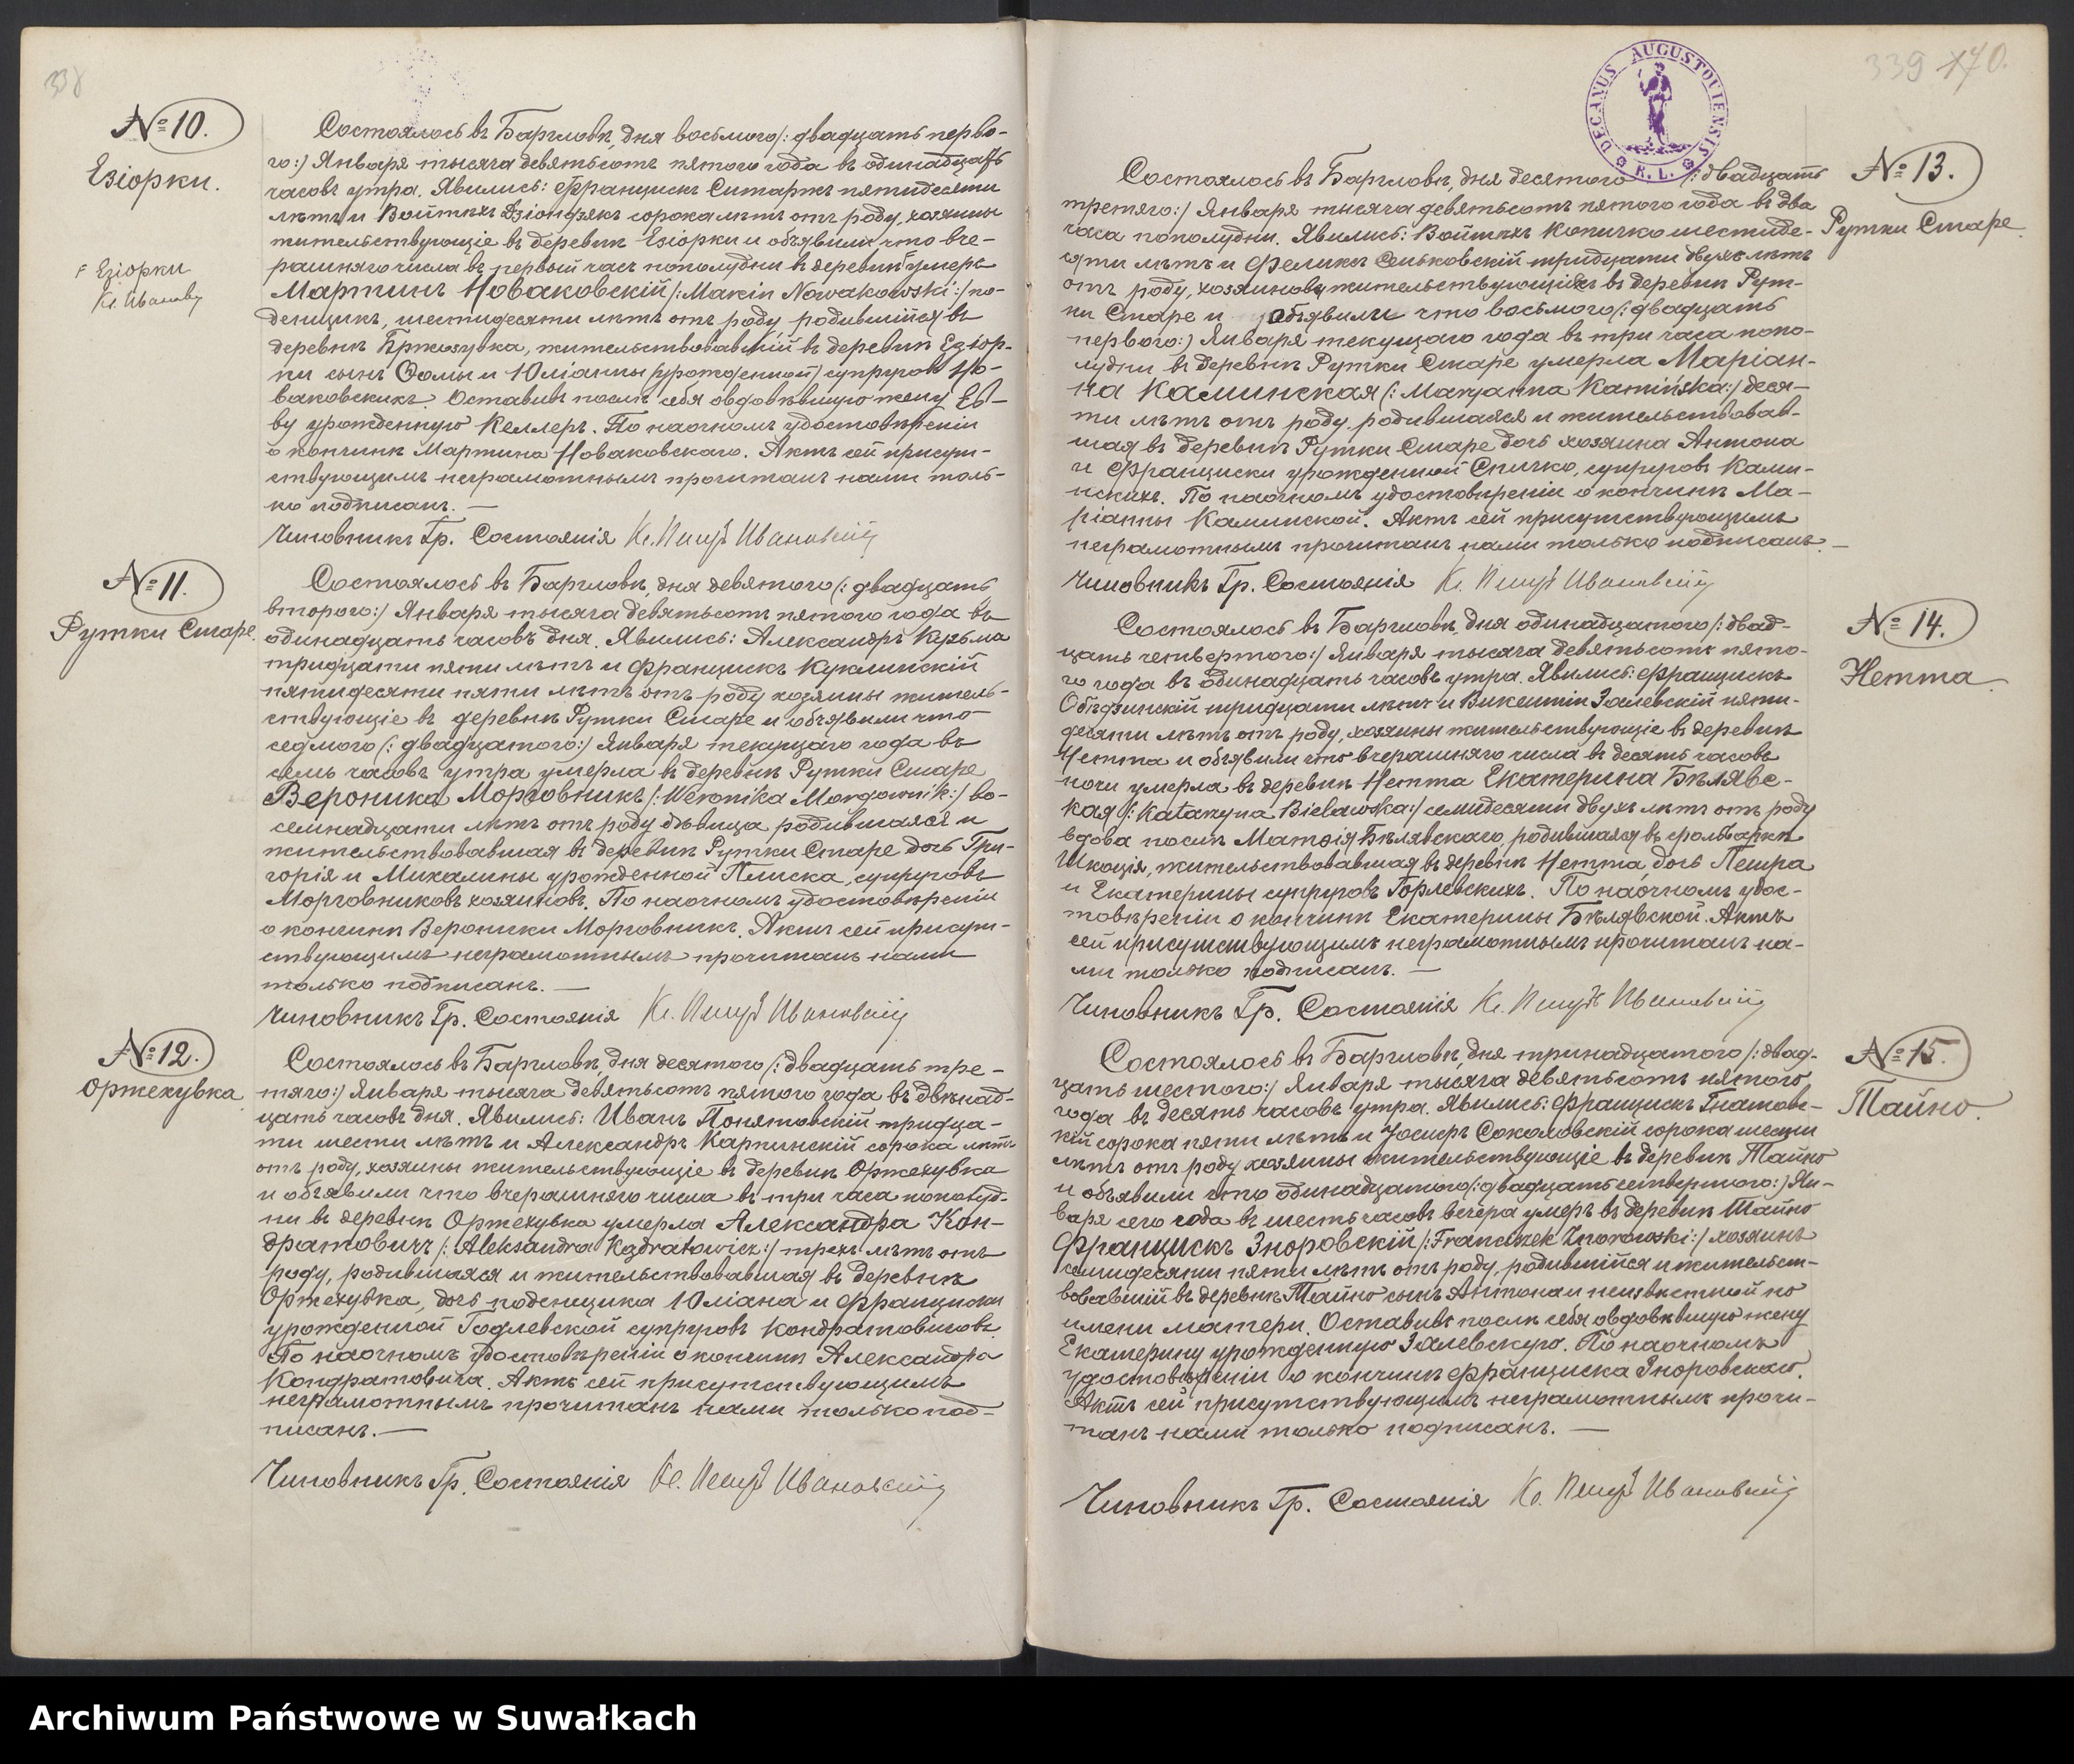 338
№ 10.
Езіорки.
F Езіорки
Кс. Иванову
Состоялось въ Баргловѣ, дня восьмого /: двадцать перво-
го :/ Января тысяча девятьсотъ пятого года въ одинадцать
часовъ утра. Явились: Францискъ Ситаржъ пятидесяти
лѣтъ и Войтѣхъ Дзіондзякъ сорока лѣтъ отъ роду, хозяины
жительствующіе въ деревнѣ Езіорки и объявили что вче-
рашняго числа въ первый часъ пополудни въ деревнѣ F умеръ
Мартинъ Новаковскій /: Marcin Nowakowski :/ по-
денщикъ, шестидесяти лѣтъ отъ роду, родившійся въ
деревнѣ Бржозувка, жительствовавшій въ деревнѣ Езіор-
ки сынъ Ѳомы и Юліанны урожденной супруговъ Но-
ваковскихъ. Оставивъ послѣ себя овдовѣвшую жену Ев-
ву урожденную Келлеръ. По наочномъ удостовѣреніи
о кончинѣ Мартина Новаковскаго. Актъ сей присут-
ствующимъ неграмотнымъ прочитанъ нами толь-
ко подписанъ. —
Чиновникъ Гр. Состоянія Кс. Петръ Ивановскій
№ 11.
Рутки Старе.
Состоялось въ Баргловѣ, дня девятого /: двадцать
второго :/ Января тысяча девятьсотъ пятого года въ
одинадцать часовъ дня. Явились: Александръ Кузьма
тридцати пяти лѣтъ и Францискъ Куклинскій
пятидесяти пяти лѣтъ отъ роду хозяины житель-
ствующіе въ деревнѣ Рутки Старе и объявили что
седмого /: двадцатого :/ Января текущаго года въ
семь часовъ утра умерла въ деревнѣ Рутки Старе
Вероника Морговникъ /: Weronika Morgownik :/ во-
семнадцати лѣтъ отъ роду дѣвица родившаяся и
жительствовавшая въ деревнѣ Рутки Старе дочь Гри-
горія и Михалины урожденной Плиска, супруговъ
Морговниковъ хозяиновъ. По наочномъ удостовѣреніи
о кончинѣ Вероники Морговникъ. Актъ сей присут-
ствующимъ неграмотнымъ прочитанъ нами
только подписанъ. —
Чиновникъ Гр. Состоянія Кс. Петръ Ивановскій
№ 12.
Оржехувка
Состоялось въ Баргловѣ, дня десятого /: двадцать тре-
тяго :/ Января тысяча девятьсотъ пятого года въ двѣнад-
цать часовъ дня. Явились: Иванъ Понятовскій тридца-
ти шести лѣтъ и Александръ Карпинскій сорока лѣтъ
отъ роду, хозяины жительствующіе въ деревнѣ Оржехувка
и объявили что вчерашняго числа въ три часа пополуд-
ни въ деревнѣ Оржехувка умерла Александра Кон-
дратовичъ /: Aleksandra Kądratowicz :/ трехъ лѣтъ отъ
роду, родившаяся и жительствовавшая въ деревнѣ
Оржехувка, дочь поденщика Юліана и Франциски
урожденной Годлевской супруговъ Кондратовичовъ.
По наочномъ удостовѣреніи о кончинѣ Александра
Кондратовича. Актъ сей присутствующимъ
неграмотнымъ прочитанъ нами только под-
писанъ. —
Чиновникъ Гр. Состоянія Кс. Петръ Ивановскій
339 170.
DECANUS AUGUSTOVIENSIS R. L.
№ 13.
Рутки Старе.
Состоялось въ Баргловѣ, дня десятого /: двадцать
третяго :/ Января тысяча девятьсотъ пятого года въ два
часа пополудни. Явились: Войтѣхъ Копичко шестиде-
сяти лѣтъ и Феликсъ Сеньковскій тридцати двухъ лѣтъ
отъ роду, хозяиновъ жительствующихъ въ деревнѣ Рут-
ки Старе и объявили что восьмого /: двадцать
первого :/ Января текущаго года въ три часа попо-
лудни въ деревнѣ Рутки Старе умерла Маріан-
на Каминская /: Maryanna Kamińska :/ деся-
ти лѣтъ отъ роду, родившаяся и жительствовав-
шая въ деревнѣ Рутки Старе дочь хозяина Антона
и Франциски урожденной Спичко, супруговъ Камин-
скихъ. По наочномъ удостовѣреніи о кончинѣ Ма-
ріанны Каминской. Актъ сей присутствующимъ
неграмотнымъ прочитанъ нами только подписанъ. —
Чиновникъ Гр. Состоянія Кс. Петръ Ивановскій
№ 14.
Нетта.
Состоялось въ Баргловѣ, дня одинадцатого /: двад-
цать четвертого :/ Января тысяча девятьсотъ пято-
го года въ одинадцать часовъ утра. Явились: Францискъ
Обѣдзинскій тридцати лѣтъ и Викентій Залевскій пяти-
десяти лѣтъ отъ роду, хозяины жительствующіе въ деревнѣ
Нетта и объявили что вчерашняго числа въ десять часовъ
ночи умерла въ деревнѣ Нетта Екатерина Бѣлявс-
кая /: Katarzyna Bielawska :/ семидесяти двухъ лѣтъ отъ роду
вдова послѣ Матѳія Бѣлявскаго, родившаяся въ фольваркѣ
Шкоція, жительствовавшая въ деревнѣ Нетта, дочь Петра
и Екатерины супруговъ Горлевскихъ. По наочномъ удос-
товѣреніи о кончинѣ Екатерины Бѣлявской. Актъ
сей присутствующимъ неграмотнымъ прочитанъ на-
ми только подписанъ. —
Чиновникъ Гр. Состоянія Кс. Петръ Ивановскій
№ 15.
Тайно.
Состоялось въ Баргловѣ, дня тринадцатого /: двад-
цать шестого :/ Января тысяча девятьсотъ пятого
года въ десять часовъ утра. Явились: Францискъ Гнатовс-
кій сорока пяти лѣтъ и Іосифъ Соколовскій сорока шести
лѣтъ отъ роду хозяины жительствующіе въ деревнѣ Тайно
и объявили что одинадцатого /: двадцать четвертого :/ Ян-
варя сего года въ шесть часовъ вечера умеръ въ деревнѣ Тайно
Францискъ Зноровскій /: Franciszek Znorowski :/ хозяинъ
семидесяти пяти лѣтъ отъ роду, родившійся и жительст-
вовавшій въ деревнѣ Тайно сынъ Антона и неизвѣстной по
имени матери. Оставивъ послѣ себя овдовѣвшую жену
Екатерину урожденную Залевскую. По наочномъ
удостовѣреніи о кончинѣ Франциска Зноровскаго.
Актъ сей присутствующимъ неграмотнымъ прочи-
танъ нами только подписанъ. —
Чиновникъ Гр. Состоянія Кс. Петръ Ивановскій
Archiwum Państwowe w Suwałkach